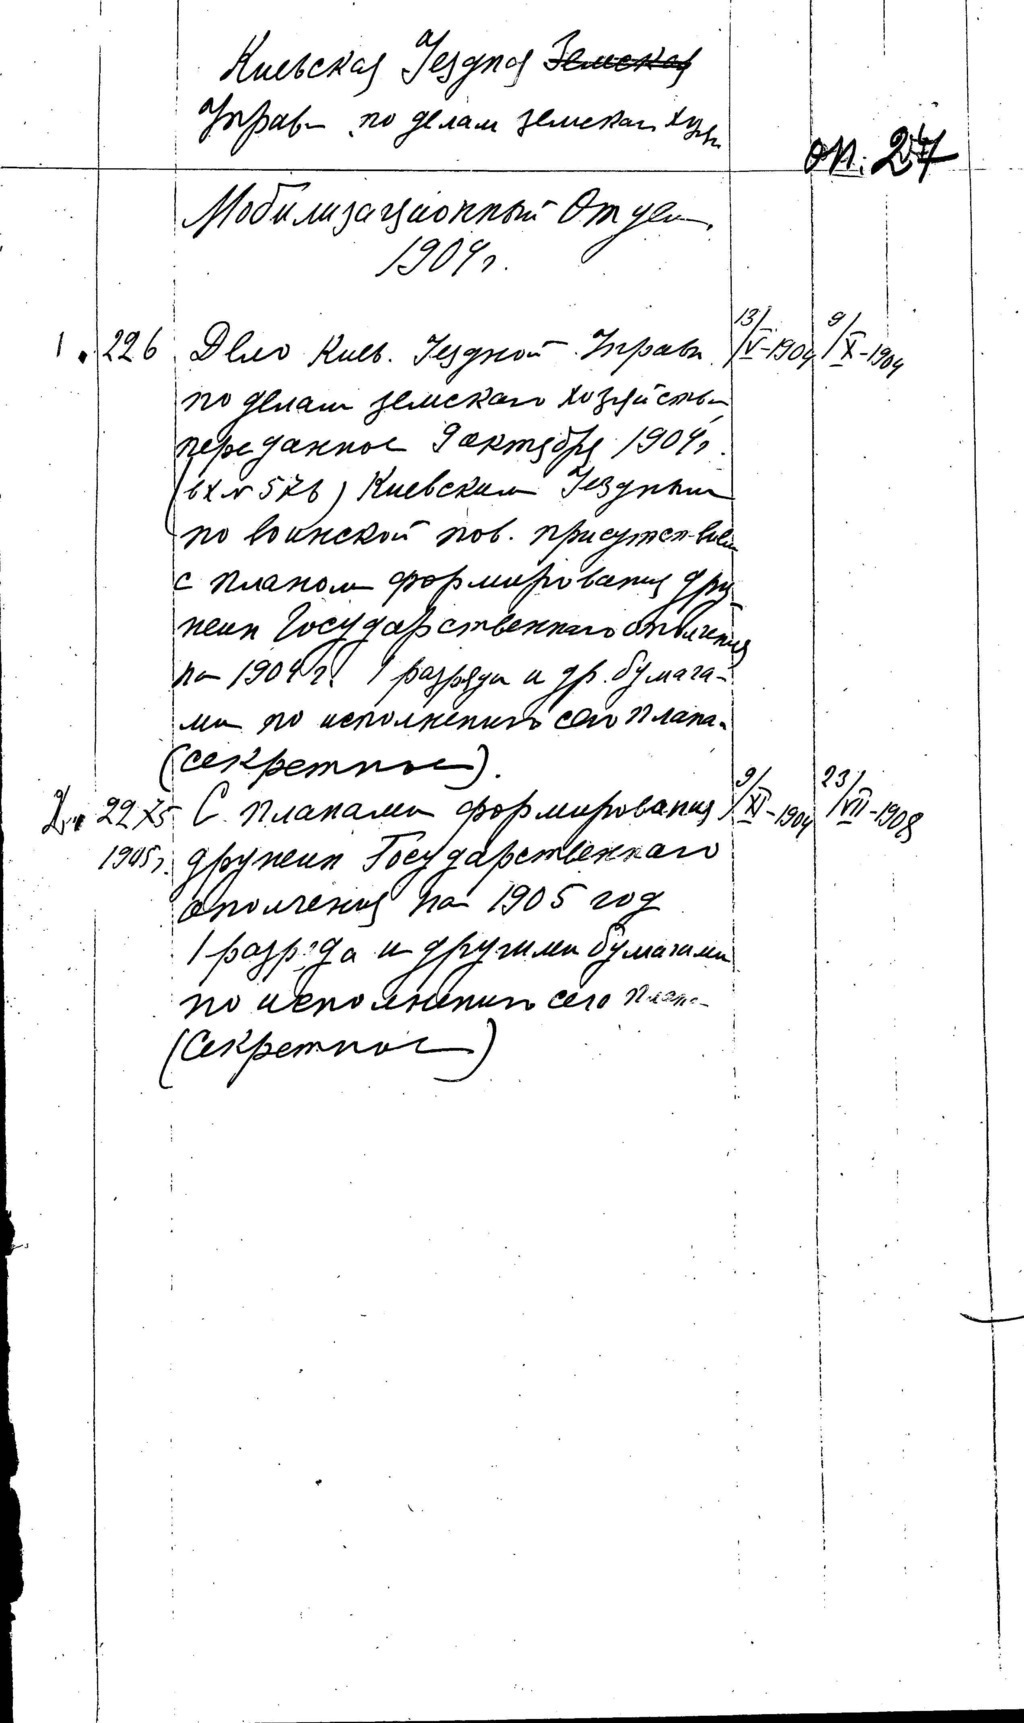 Киевская Уездная ~~Земская~~
Управа по делам земскаго хоз-ва
оп. 27
Мобилизационный Отдел.
1904 г.
1. 226 Дело Киев. Уездной Управы 13/V-1904 9/X-1904
по делам земскаго хозяйства
переданное 9 октября 1904 г.
(вх № 576) Киевским Уездным
по воинской пов. присутствием
с планом формирования дру-
жин Государственнаго ополчения
на 1904 г. 1 разряда и др. бумага-
ми по исполнению сего плана.
(секретное).
2. 2275 С планами формирования 9/XI-1904 23/VII-1908
1905 г. дружин Государственнаго
ополчения на 1905 год
1 разряда и другими бумагами
по исполнению сего плана
(Секретное)